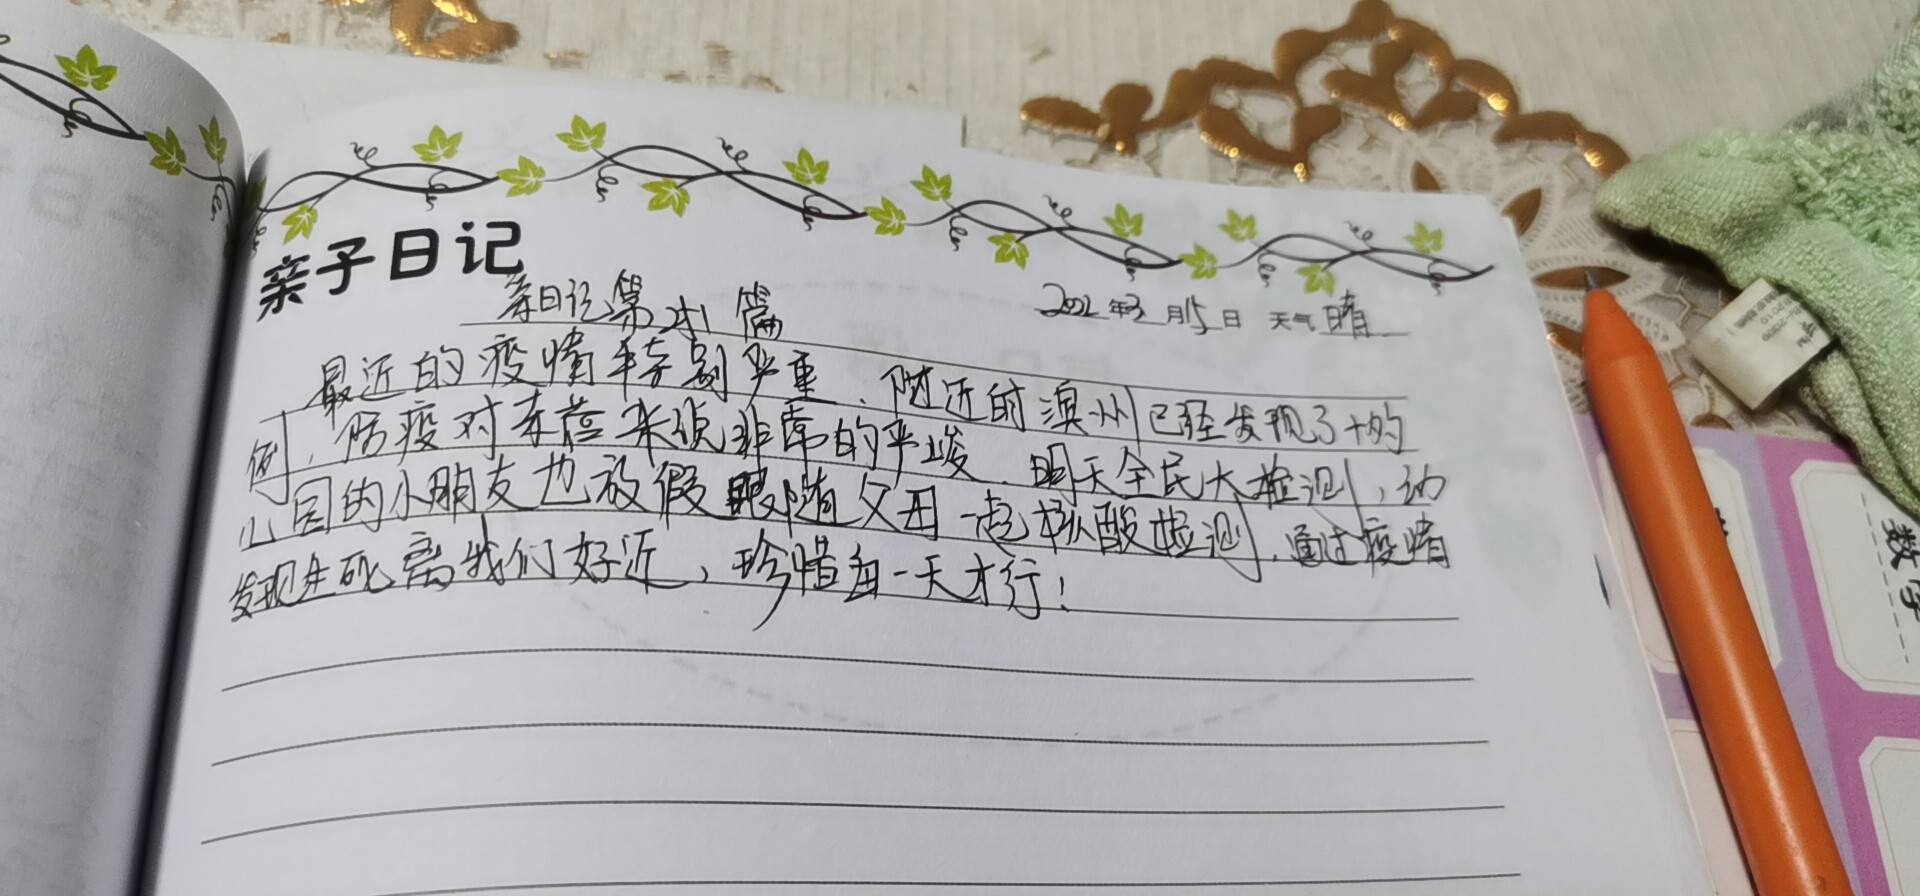 亲子日记
亲日记第 篇
2022年3月15日 天气 晴
最近的疫情特别严重、附近的潭州已经发现了+的
例,防疫对东莞来说非常的严峻、明天全民大检测,幼
儿园的小朋友也放假跟随父母一起核酸检测、通过疫情
发现生死离我们好近,珍惜每一天才行!
数字